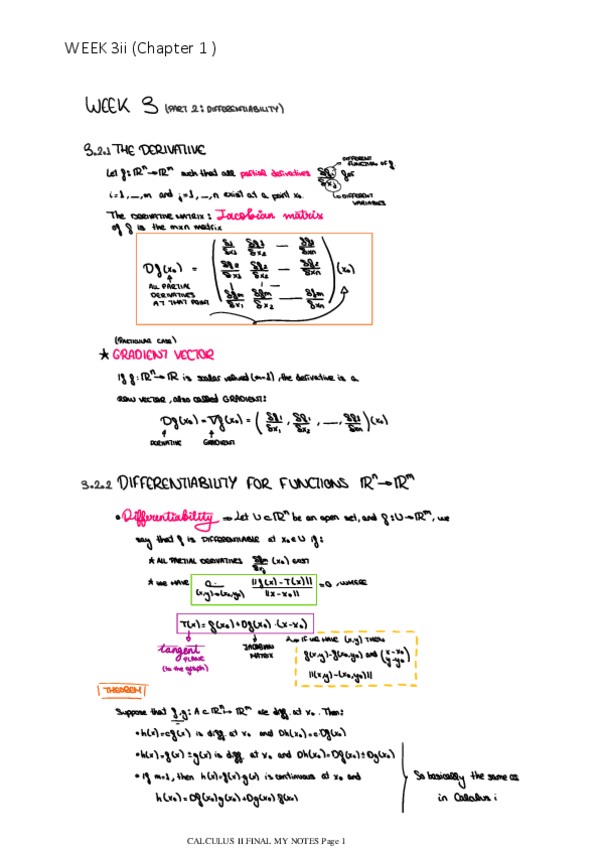 WEEK 3ii (Chapter 1 )
WEEK 3 (PART 2: DIFFERENTIABILITY)
3.2.1 THE DERIVATIVE
Let f: ℝⁿ→ℝᵐ such that all partial derivatives δfi/δxj for
DIFFERENT FUNCTION OF f
DIFFERENT VARIABLES
i=1,...,m and j=1,...,n exist at a point x₀.
THE DERIVATIVE MATRIX: Jacobian matrix
of f is the mxn matrix
Df(x₀) = ( δf1/δx1 δf1/δx2 — δf1/δxn
δf2/δx1 δf2/δx2 — δf2/δxn
δfm/δx1 δfm/δx2 — δfm/δxn ) (x₀)
ALL PARTIAL
DERIVATIVES
AT THAT POINT
(PARTICULAR CASE)
★ GRADIENT VECTOR
If f: ℝⁿ→ℝ is scalar valued (m=1), the derivative is a
row vector, also called GRADIENT:
Df(x₀) = ∇f(x₀) = ( δf1/δx1 , δf1/δx2 , —, ) (x₀)
DERIVATIVE GRADIENT
3.2.2 DIFFERENTIABILITY FOR FUNCTIONS ℝⁿ→ℝᵐ
• Differentiability ⇒ Let U⊂ℝⁿ be an open set, and f: U→ℝᵐ, we
say that f is DIFFERENTIABLE at x₀∈U if:
★ ALL PARTIAL DERIVATIVES δfm/δxj (x₀) exist
★ WE HAVE ||f(x)-T(x)|| / ||x-x₀|| =0, WHERE
(x,y)→(x₀,y₀)
T(x) = f(x₀)+Df(x₀)·(x-x₀)
IF WE HAVE (x,y) THEN
tangent
PLANE
(to the graph)
JACOBIAN
MATRIX
f(x,y)-f(x₀,y₀) and (x-x₀ y-y₀)
||(x,y)-(x₀,y₀)||
THEOREM
Suppose that f,g: A⊂ℝⁿ→ℝᵐ are diff. at x₀. Then:
• h(x)=cf(x) is diff. at x₀ and Dh(x₀)=cDf(x₀)
• h(x)=f(x)±g(x) is diff. at x₀ and Dh(x₀)=Df(x₀)±Dg(x₀)
• If m=1, then h(x)=f(x)g(x) is continuous at x₀ and
h(x₀)=Df(x₀)g(x₀)+Dg(x₀)f(x₀)
So basically the same as
in Calculus i
CALCULUS II FINAL MY NOTES Page 1